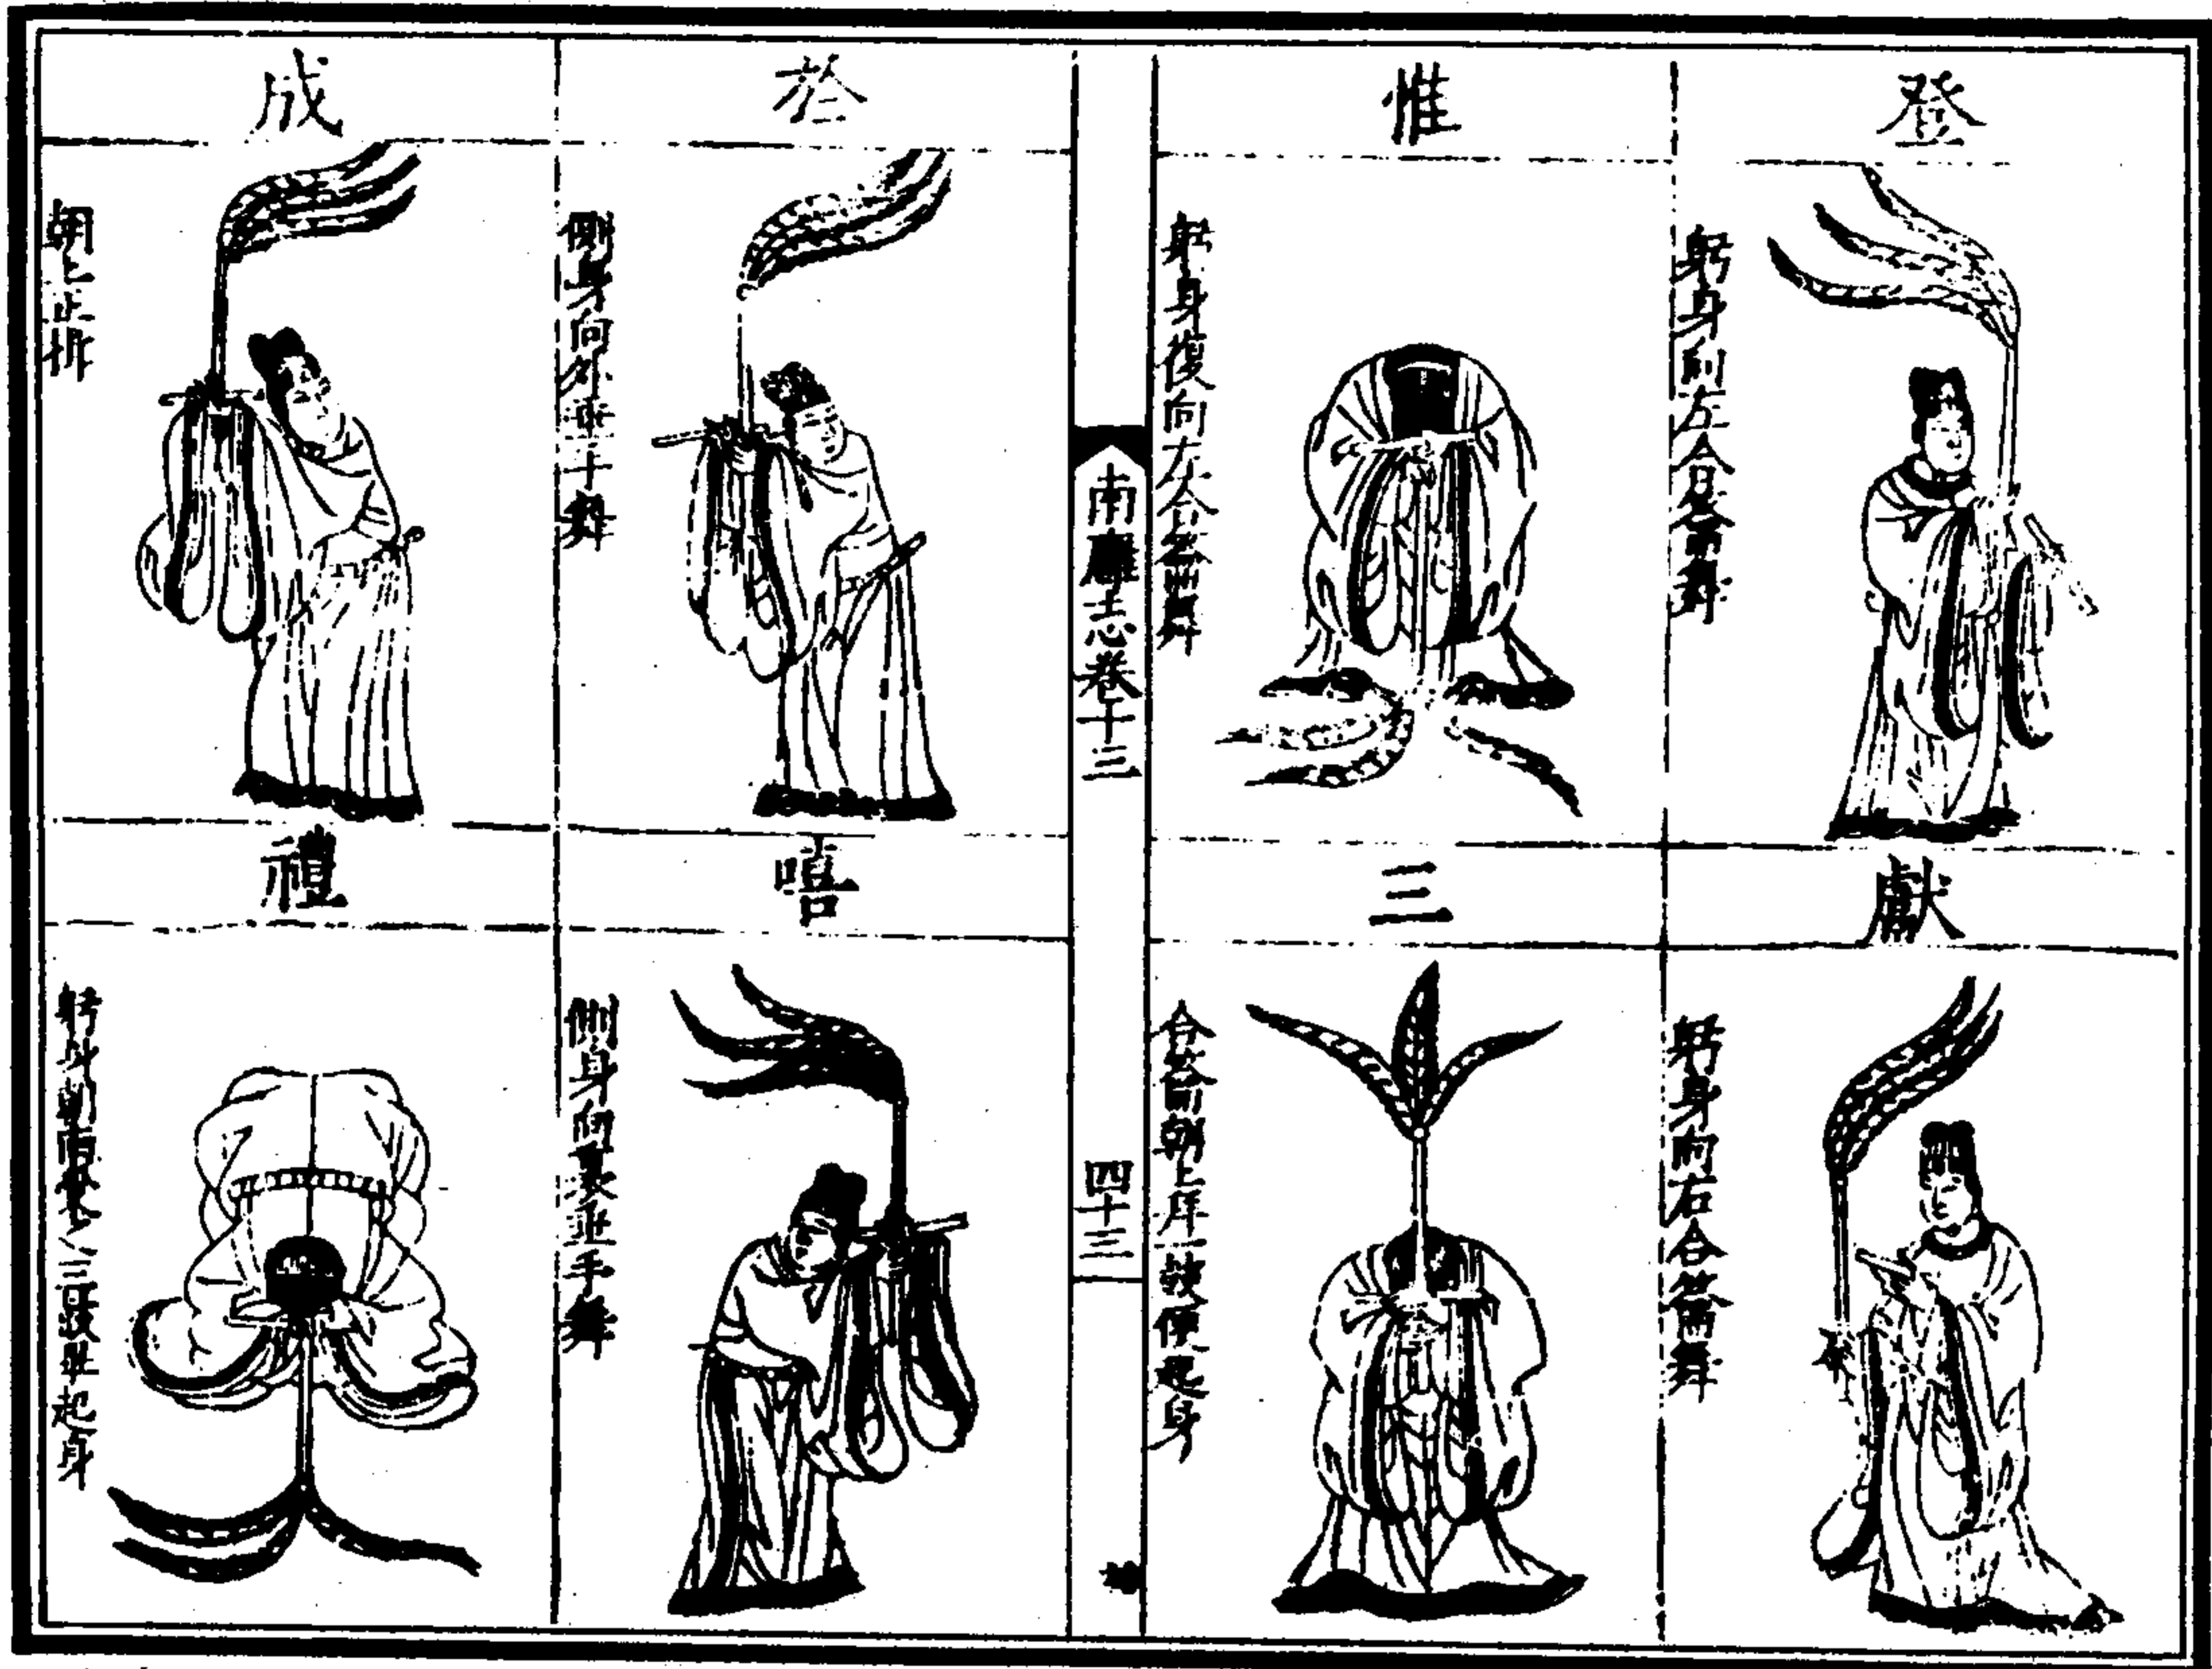 登
躬身向左合籥舞
獻
躬身向右合籥舞
惟
躬身復向左合籥舞
三
合籥朝上拜一鼓便起身
南廱志卷十三
四十三
於
側身向外垂手舞
嘻
側身向裏垂手舞
成
朝上正揖
禮
躬身朝
三鼓畢起身